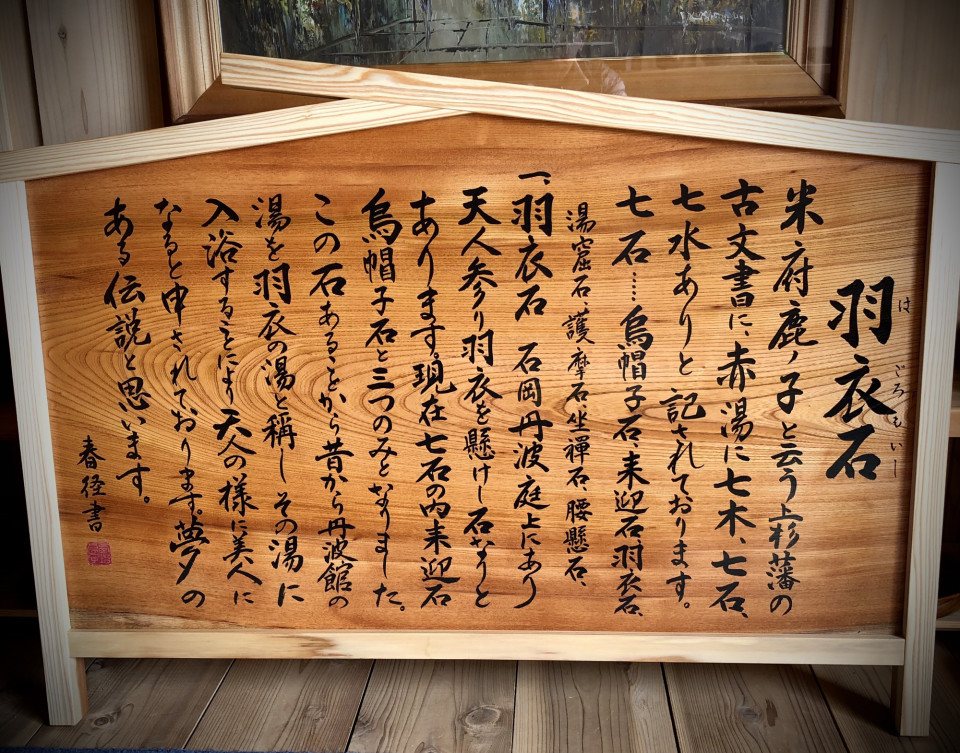 羽衣石
はごろもいし
米府鹿ノ子と云う上杉藩の
古文書に、赤湯に七木、七石、
七水ありと記されております。
七石……烏帽子石来迎石羽衣石、
湯窟石、護摩石坐禪石、腰懸石、
一、羽衣石 石岡丹波庭上にあり
天人参り羽衣を懸けし石なりと
あります。現在七石の内来迎石
烏帽子石と三つのみとなりました。
この石あることから昔から丹波館の
湯を羽衣の湯と稱しその湯に
入浴することにより天人の様に美人に
なると申されております。夢の
ある伝説と思います。
春径書